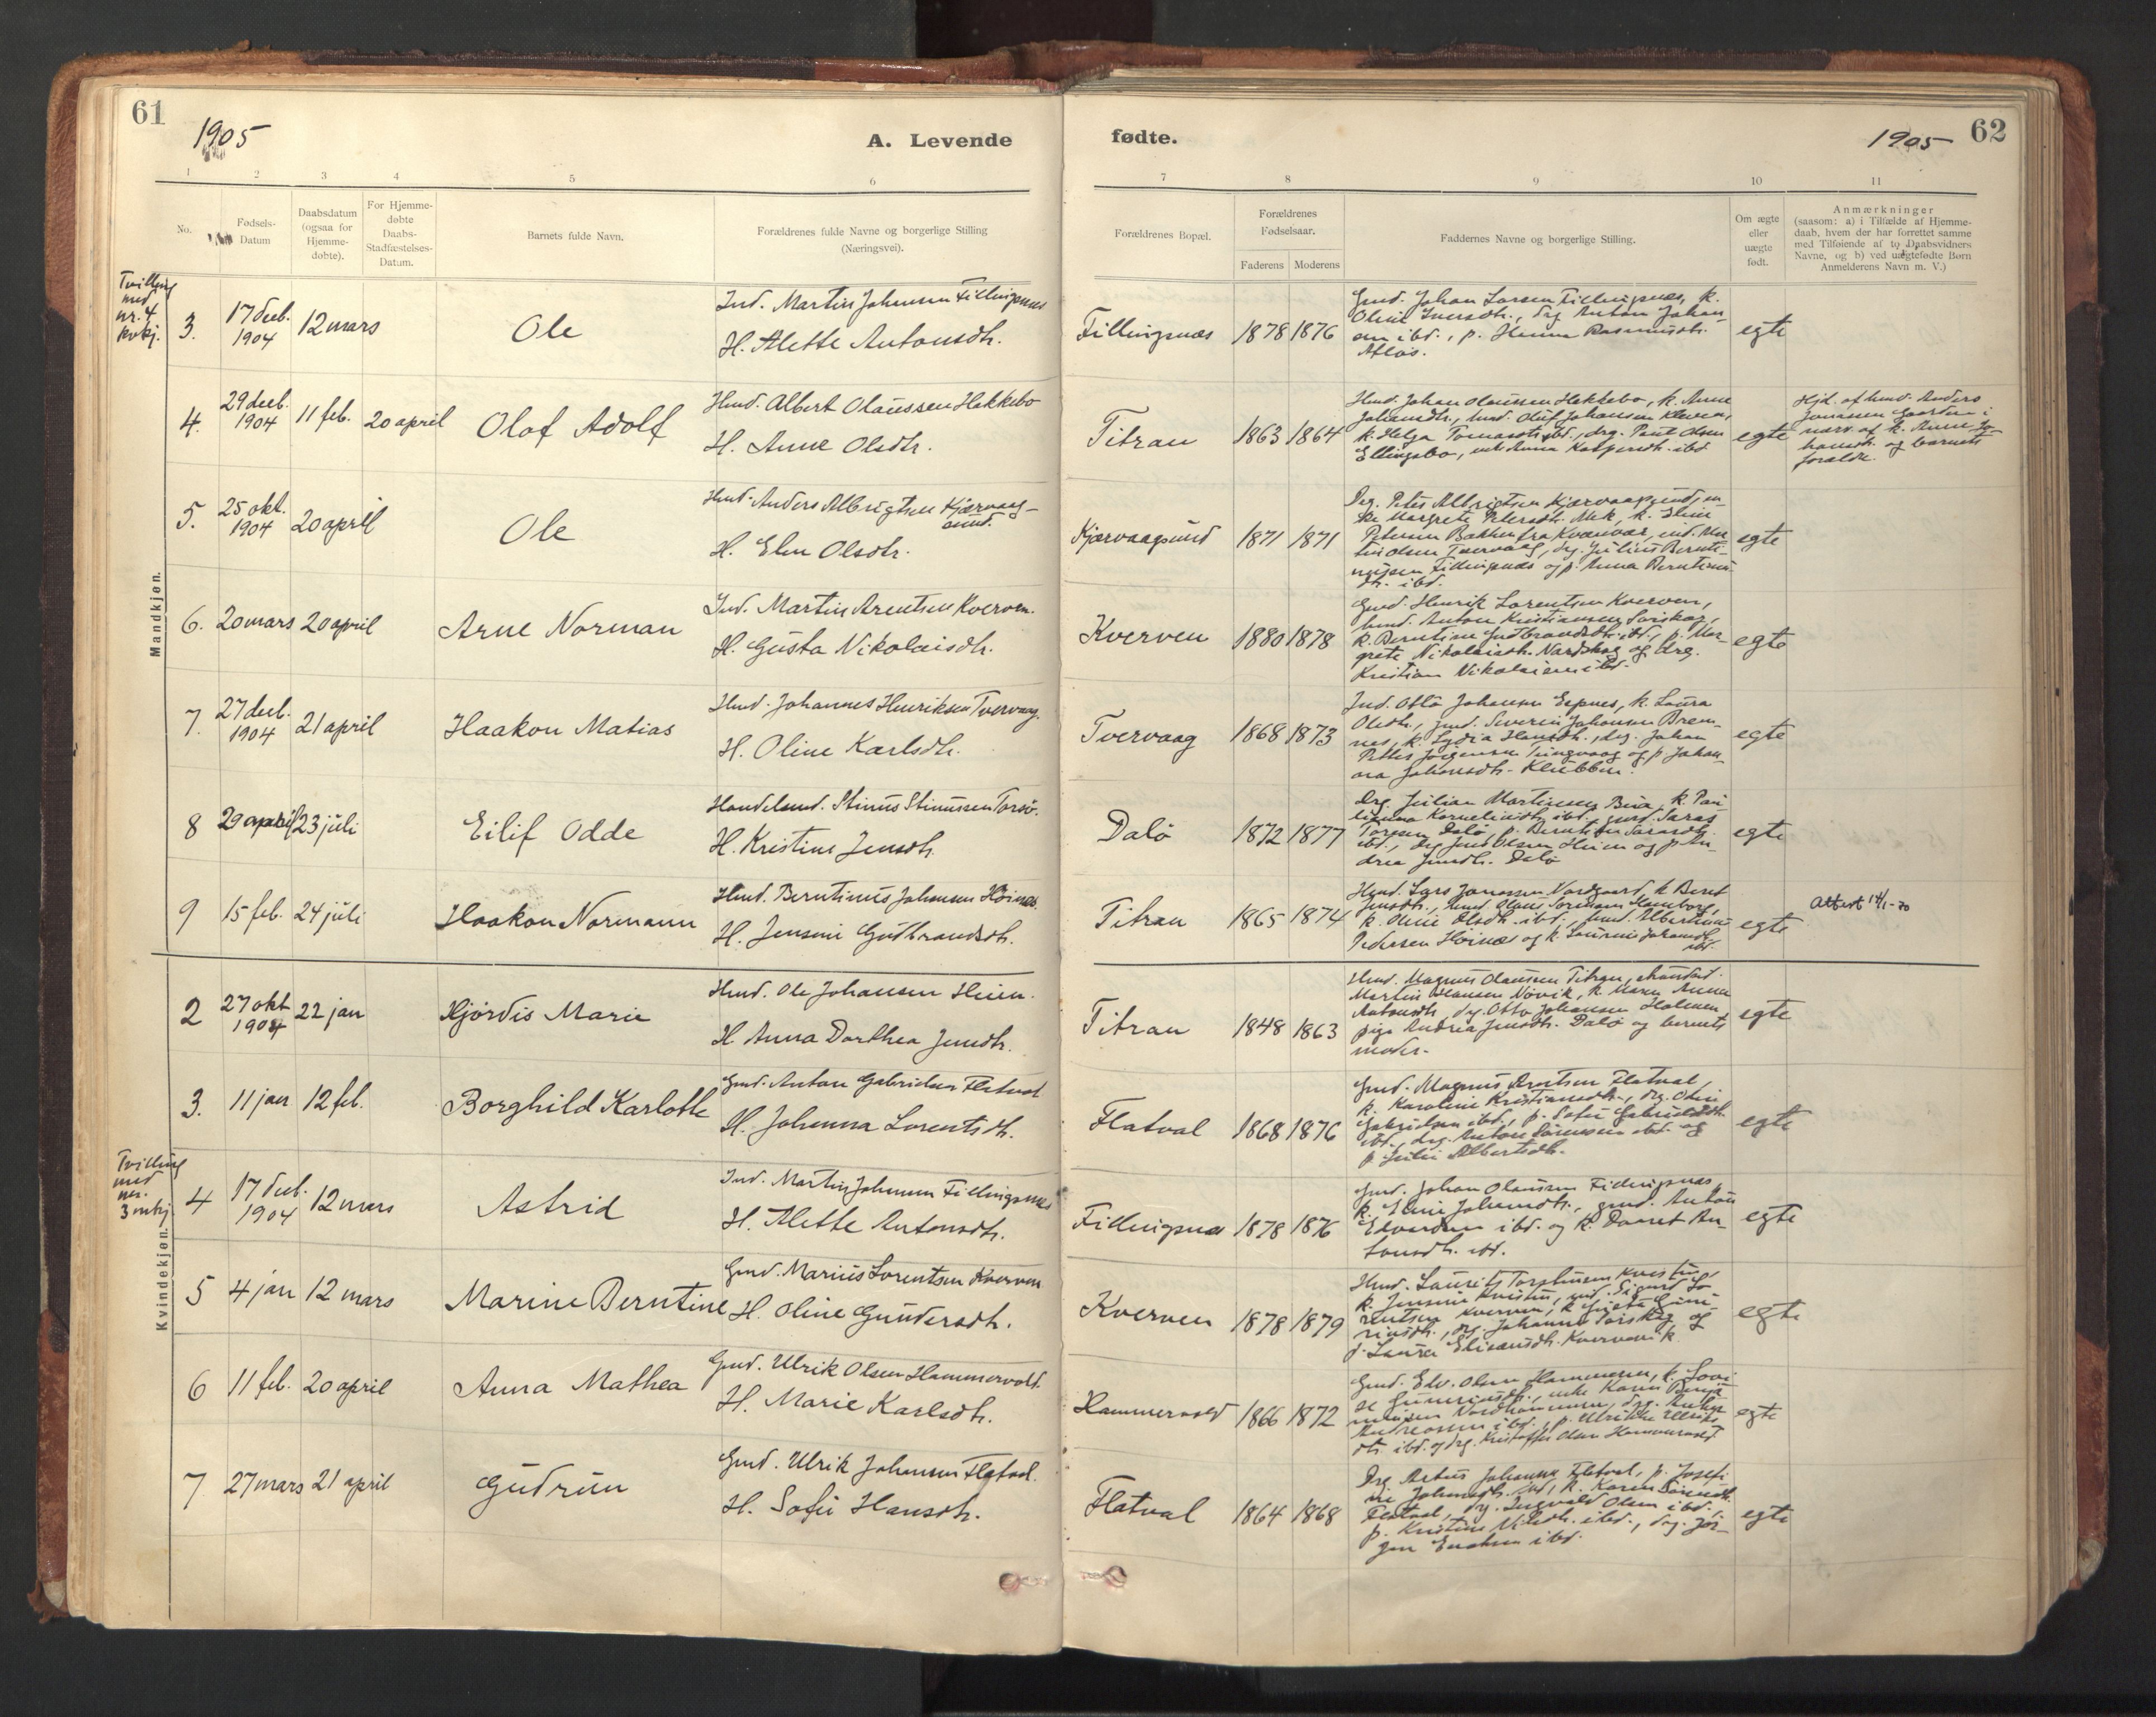 61
1905
A. Levende
fødte.
1905
62
1 2 3 4 5 6 7 8 9 10 11
No.
Fødsels-
Datum
Daabsdatum
(ogsaa for
Hjemme-
døbte).
For Hjemme-
døbte
Daabs-
Stadfæstelses-
Datum.
Barnets fulde Navn.
Forældrenes fulde Navne og borgerlige Stilling
(Næringsvei).
Forældrenes Bopæl.
Forældrenes
Fødselsaar.
Faderens Moderens
Faddernes Navne og borgerlige Stilling.
Om ægte
eller
uægte
født.
Anmærkninger
(saasom: a) i Tilfælde af Hjemme-
daab, hvem der har forrettet samme
med Tilføiende af to Daabsvidners
Navne, og b) ved uægtefødte Børn
Anmelderens Navn m. V.)
Mandkjøn.
Tvilling
med
nr. 4
kvkj.
3. 17 decb.
1904
12 mars
Ole
Ind. Martin Johansen Fillingsnes
H. Alette Antonsdtr.
Fillingsnæs 1878 1876
Gmd. Johan Larsen Fillingsnæs, k.
Oline Iversdtr., drg Anton Johan-
sen ibd., p. Hanna Rasmusdtr.
egte
4. 29 decb.
1904
11 feb. 20 april
Olaf Adolf
Hmd. Albert Olaussen Hakkebo
H. Anne Olsdtr.
Titran 1863 1864
Hmd. Johan Olausen Hakkebo, k. Anne
Johansdtr., hmd. Oluf Johansen Kleven,
k. Helga Tomasdtr. ibd., drg. Paul Olsen
Ellingsbo, enke Anna Kaspersdtr. ibd
egte
Hjd. af hmd. Anders
Jonassen Gaarden i
nærv. af k. Anne Jo-
hansdtr. og barnets
foraldre.
5. 25 okt.
1904
20 april
Ole
Hmd. Anders Albrigtsen Kjærvaag-
sund.
H. Elen Olsdtr.
Kjærvaagsund 1871 1871
Drg. Peter Albrigtsen Kjærvaagsund, en-
ke Margrete Petersdtr. k.
Petersen Bakken fra Kvænvær, ind. Mar-
tin Olsen Tvervaag, drg. Julius Bernti-
nussen Fillingsnæs og p. Anna Berntinus-
dtr. ibd.
egte
6. 20 mars 20 april
Arne Norman
Ind. Martin Arentsen Kverven.
H. Gusta Nikolaisdtr.
Kverven 1880 1878
Gmd. Henrik Lorentsen Kverven,
hmd. Anton Kristiansen Sørskag,
k. Berntine Gudbrandsdtr. ibd., p. Mar-
grete Nikolaisdtr. Nordskag og drg.
Kristian Nikolaisen ibd.
egte
7. 27 decb.
1904
21 april
Haakon Matias
Hmd. Johannes Henriksen Tvervaag.
H. Oline Karlsdtr.
Tvervaag 1868 1873
Ind. Otto Johansen Espnes, k. Laura
Olsdtr., gmd. Severin Johansen Brem-
nes, k. Lydia Hansdtr., drg. Johan
Petter Jørgensen Tungvaag og p. Johan-
na Johansdtr. Klubben.
egte
8 29 april 23 juli
Eilif Odde
Handelsmd. Stinus Stinussen Torsø.
H. Kristine Jensdtr.
Dalø 1872 1877
Drg. Julian Martinsen Bua, k. Pau-
line Korneliusdtr. ibd., gmd. Saras
Toresen Dalø, p. Berntine Sarasdtr.
ibd., drg Jens Olsen Heien og p An-
drea Jensdtr. Dalø
egte
9 15 feb. 24 juli
Haakon Normann
Hmd. Berntinus Johansen Høines.
H. Jensine Gudbrandsdtr.
Titran 1865 1874
Hmd. Lars Jonassen Nordgaard, k Beret
Jensdtr., hmd Olaus Tormodsen Hamborg,
k. Oline Olsdtr. ibd., hmd. Albertinus
Pedersen Høines og k. Laurine Johansdtr.
ibd.
egte
Attest 14/1-70
Kvindekjøn.
2 27 okt
1904
22 jan
Hjørdis Marie
Hmd. Ole Johansen Heien.
H Anna Dorthea Jensdtr.
Titran 1848 1863
Hmd. Magnus Olaussen Titran, strandsd.
Martin Hansen Novik, k. Maren Anna
Antonsdtr., drg. Otto Johansen Holmen,
pige Andrea Jensdtr. Dalø og barnets
moder.
egte
3. 11 jan 12 feb.
Borghild Karlotte
Gmd. Anton Gabrielsen Flatval
H. Johanna Lorentsdtr.
Flatval 1868 1876
Gmd. Magnus Arntsen Flatval,
k. Karoline Kristiansdtr., drg. Olai
Gabrielsen ibd., p. Sofie Gabrielsdtr.
ibd., drg. Anton Sørensen ibd. og
p Julie Albertsdtr.
egte
Tvilling
med
nr.
3 mkj
4 17 decb.
1904
12 mars
Astrid
Ind. Martin Johansen Fillingsnes
H. Alette Antonsdtr.
Fillingsnæs 1878 1876
Gmd. Johan Olaussen Fillingsnæs,
k. Eline Johansdtr., gmd. Anton
Edvardsen ibd. og k. Daaret An-
tonsdtr. ibd.
egte
5 4 jan 12 mars
Marine Berntine
Gmd. Marius Lorentsen Kverven
H. Oline Gundersdtr.
Kverven 1878 1879
Hmd. Laurits Torstensen Kvisten,
k. Jensine Kvisten, gmd. Sigurd Lo-
rentsen Kverven, k
drg. Johannes Sørskag og
p. Laura Eliasdtr. Kvervevik
egte
6 11 feb. 20 april
Anna Mathea
Gmd. Ulrik Olsen Hammervold.
H. Marie Karlsdtr.
Hammervold 1866 1872
Gmd. Edv. Olsen Hammeren, k. Lovi-
se Gunneriusdtr., enke Karen Benja-
minsen Nordhammeren, drg. Anton
Andreasen ibd., p. Ulrikke Ulriks-
dtr. ibd. og drg. Kristoffer Olsen Hammervold
egte
7 27 mars 21 april
Gudrun
Gmd. Ulrik Johansen Flatval.
H. Sofie Hansdtr.
Flatval 1864 1868
Drg. Artus Johansen Flatval, p. Josefi-
ne Johansdtr. ibd., k. Karen Simonsdtr.
Flatval, drg. Ingvald Olsen ibd.,
p. Kristine Nilsdtr. ibd., drg. Jør-
gen Enoksen ibd.
egte